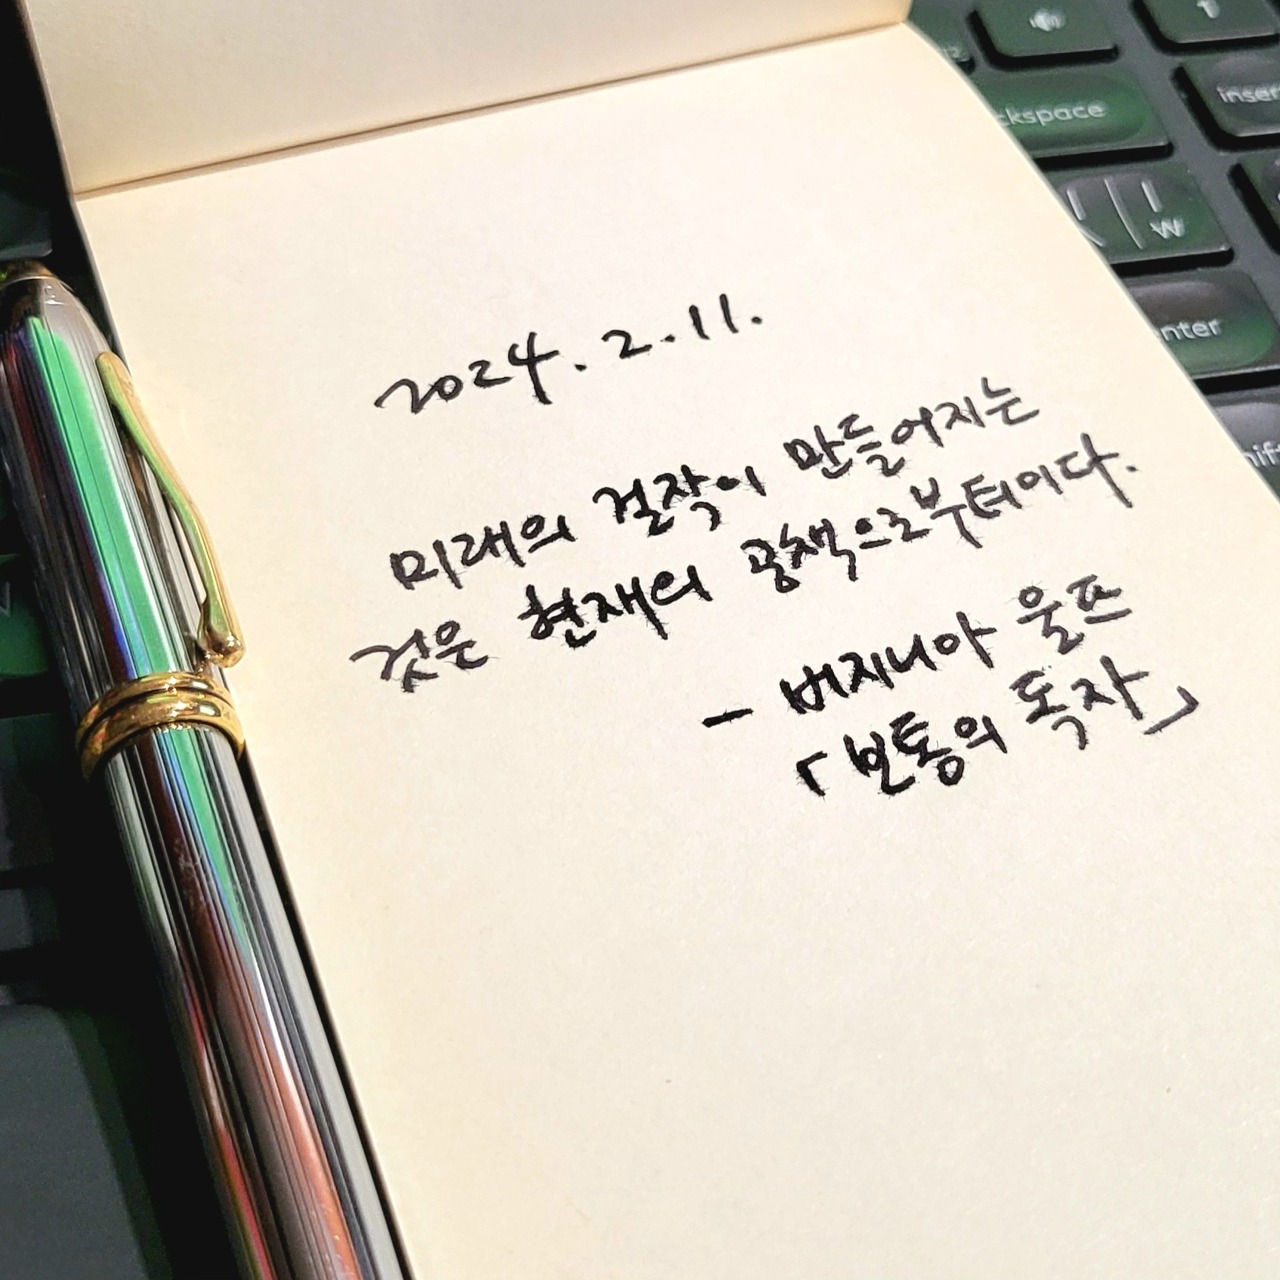 2024. 2. 11.
미래의 걸작이 만들어지는
것은 현재의 공책으로부터이다.
- 버지니아 울프
「보통의 독자」
kspace
inser
₩
nter
hif